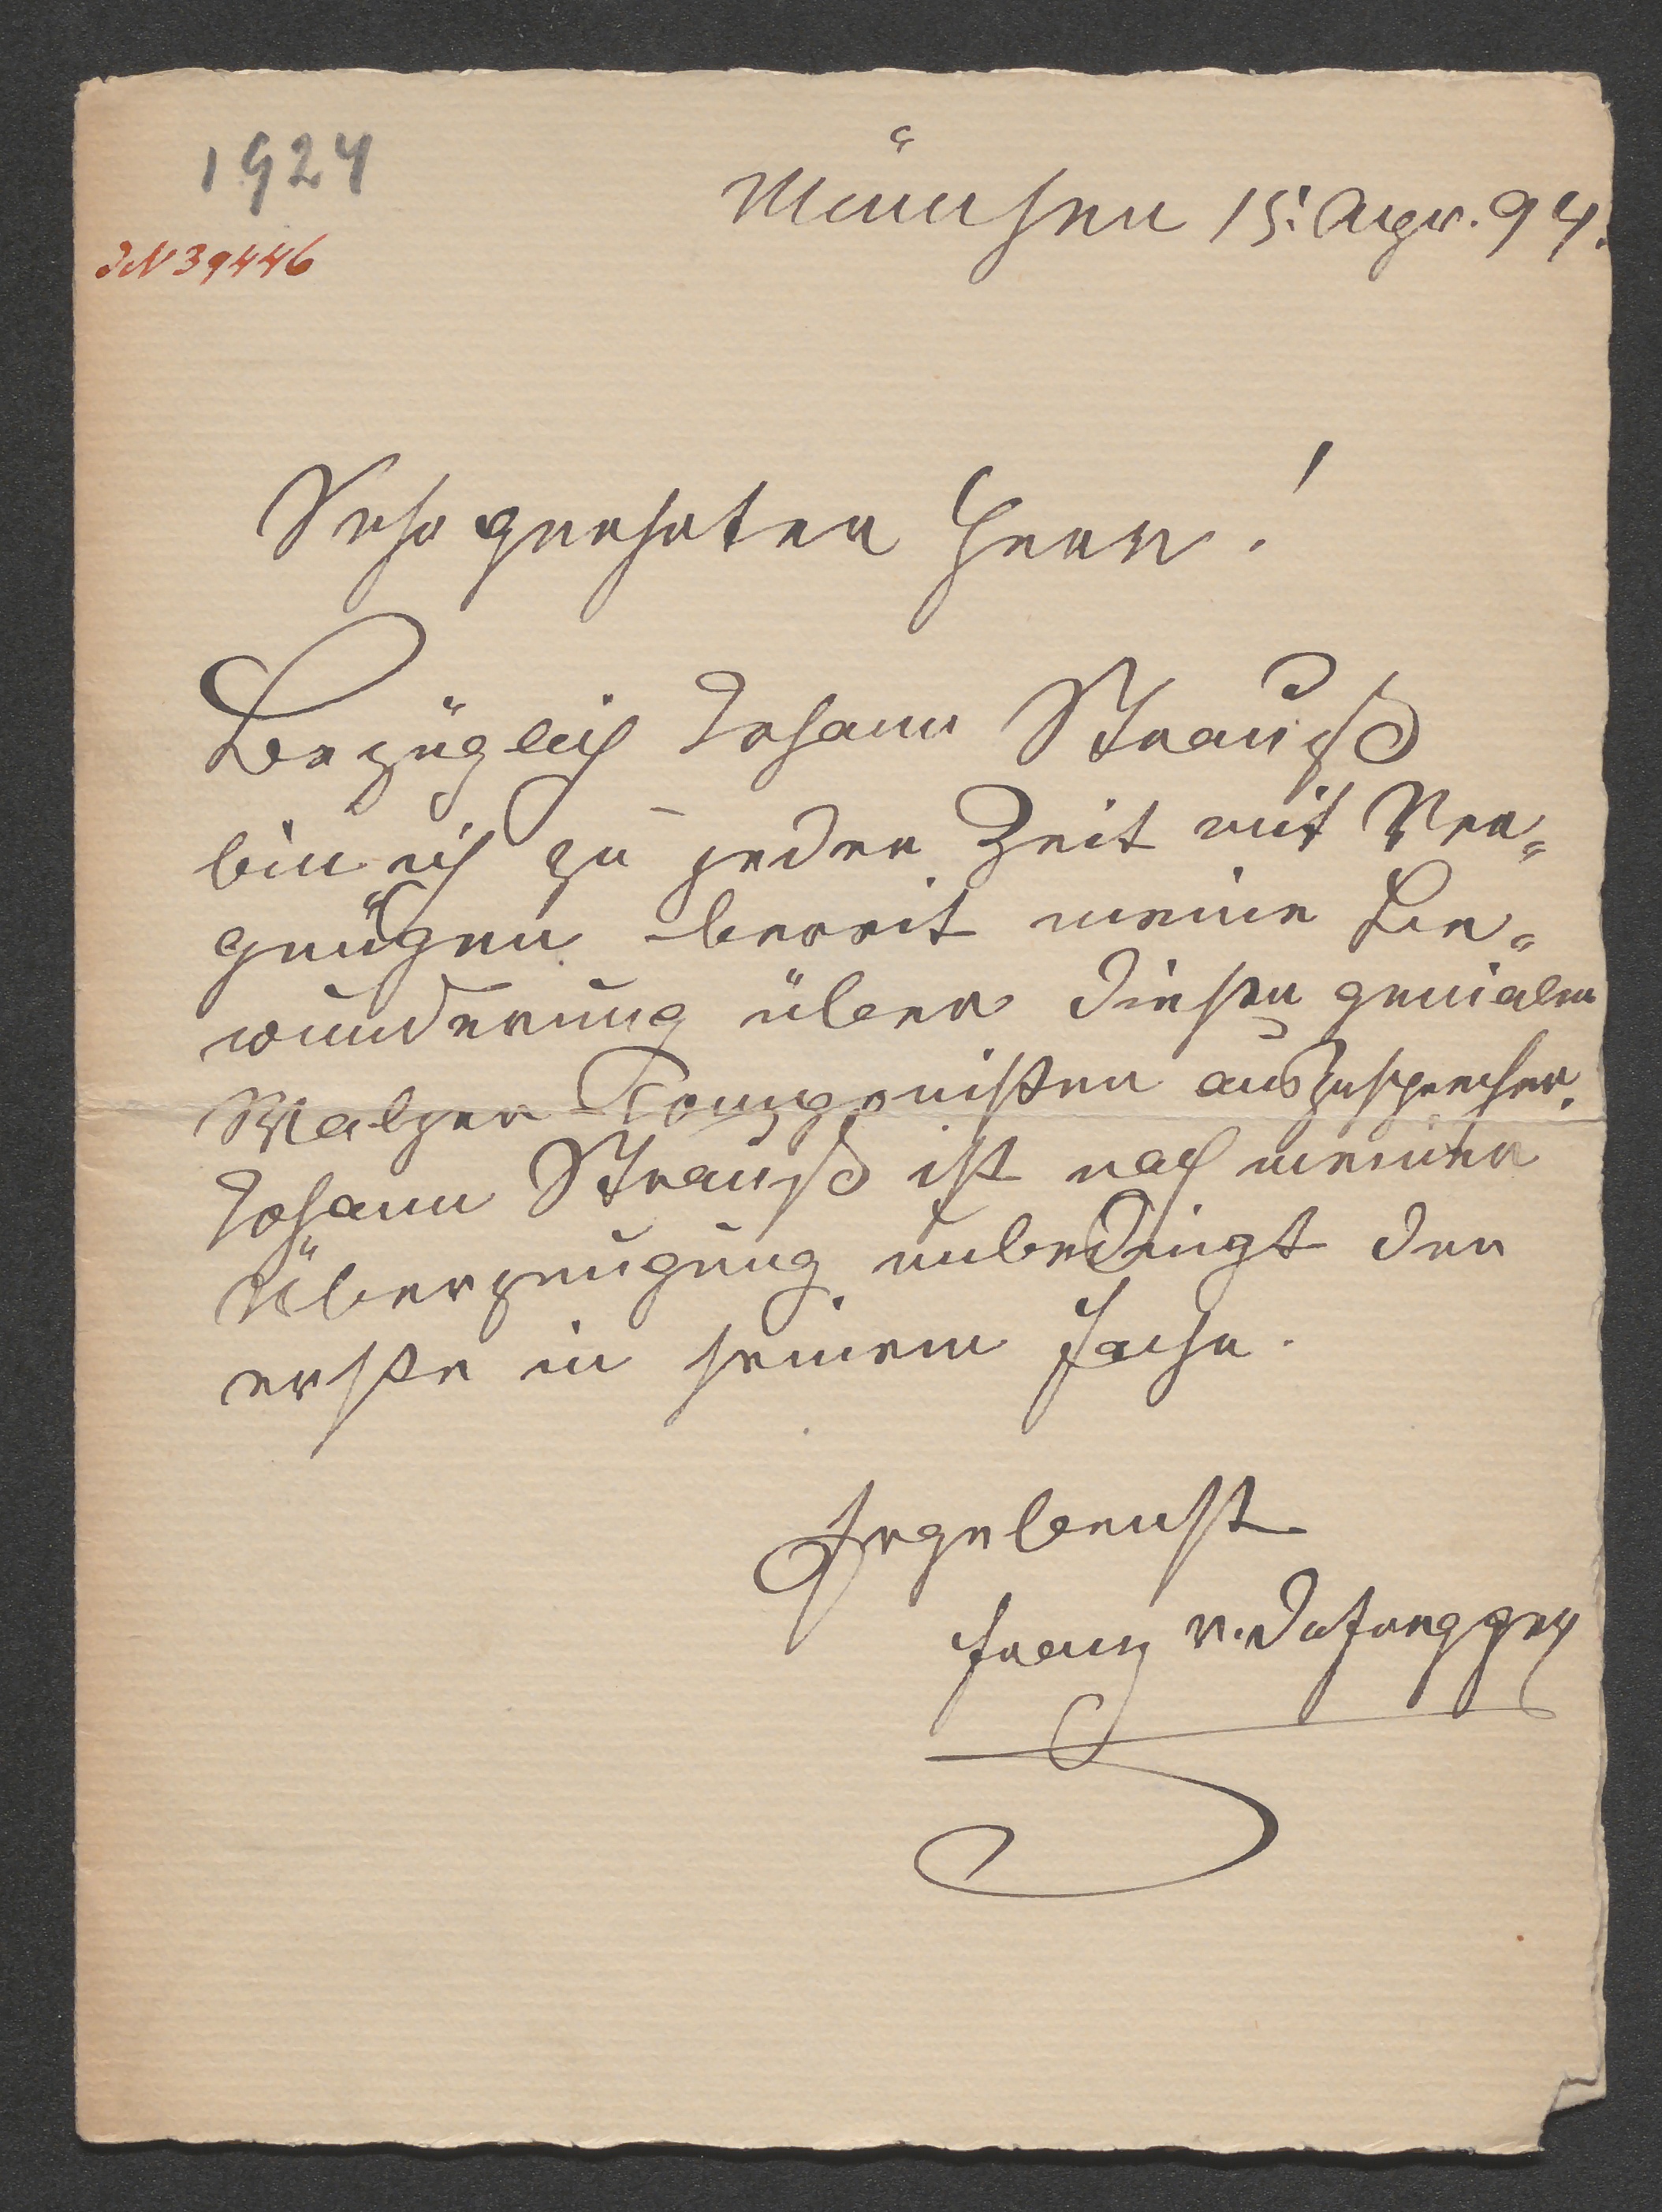 1924
München 15. Apr. 94.
IN 39446
Sehr geehrter Herr!
Bezüglich Johann Strauß
bin ich zu jeder Zeit mit Ver=
gnügen bereit meine Be=
wunderung über diesen genialen
Walzer-Componisten auszusprechen.
Johann Strauß ist nach meiner
Überzeugung unbedingt der
erste in seinem Fache.
Ergebenst
Franz v. Defregger